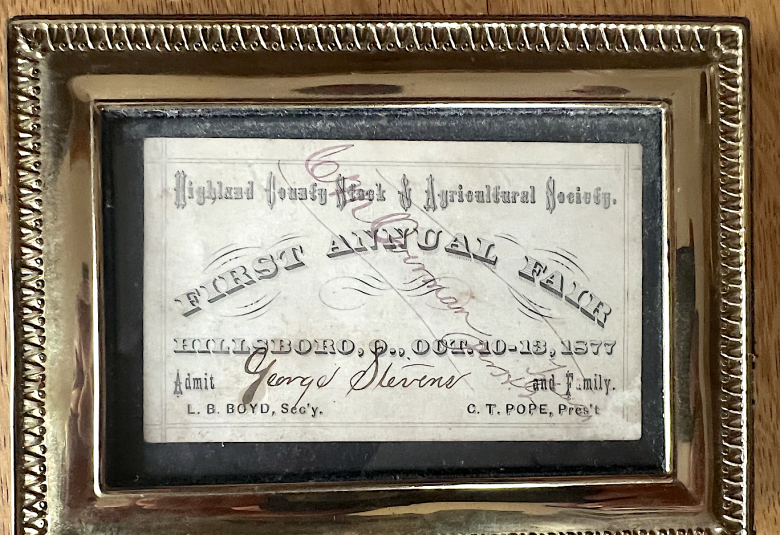 Highland County Stock & Agricultural Society.
FIRST ANNUAL FAIR
HILLSBORO, O., OCT. 10-13, 1877
Admit George Stevens and Family.
L. B. BOYD, Sec'y. C. T. POPE, Pres't